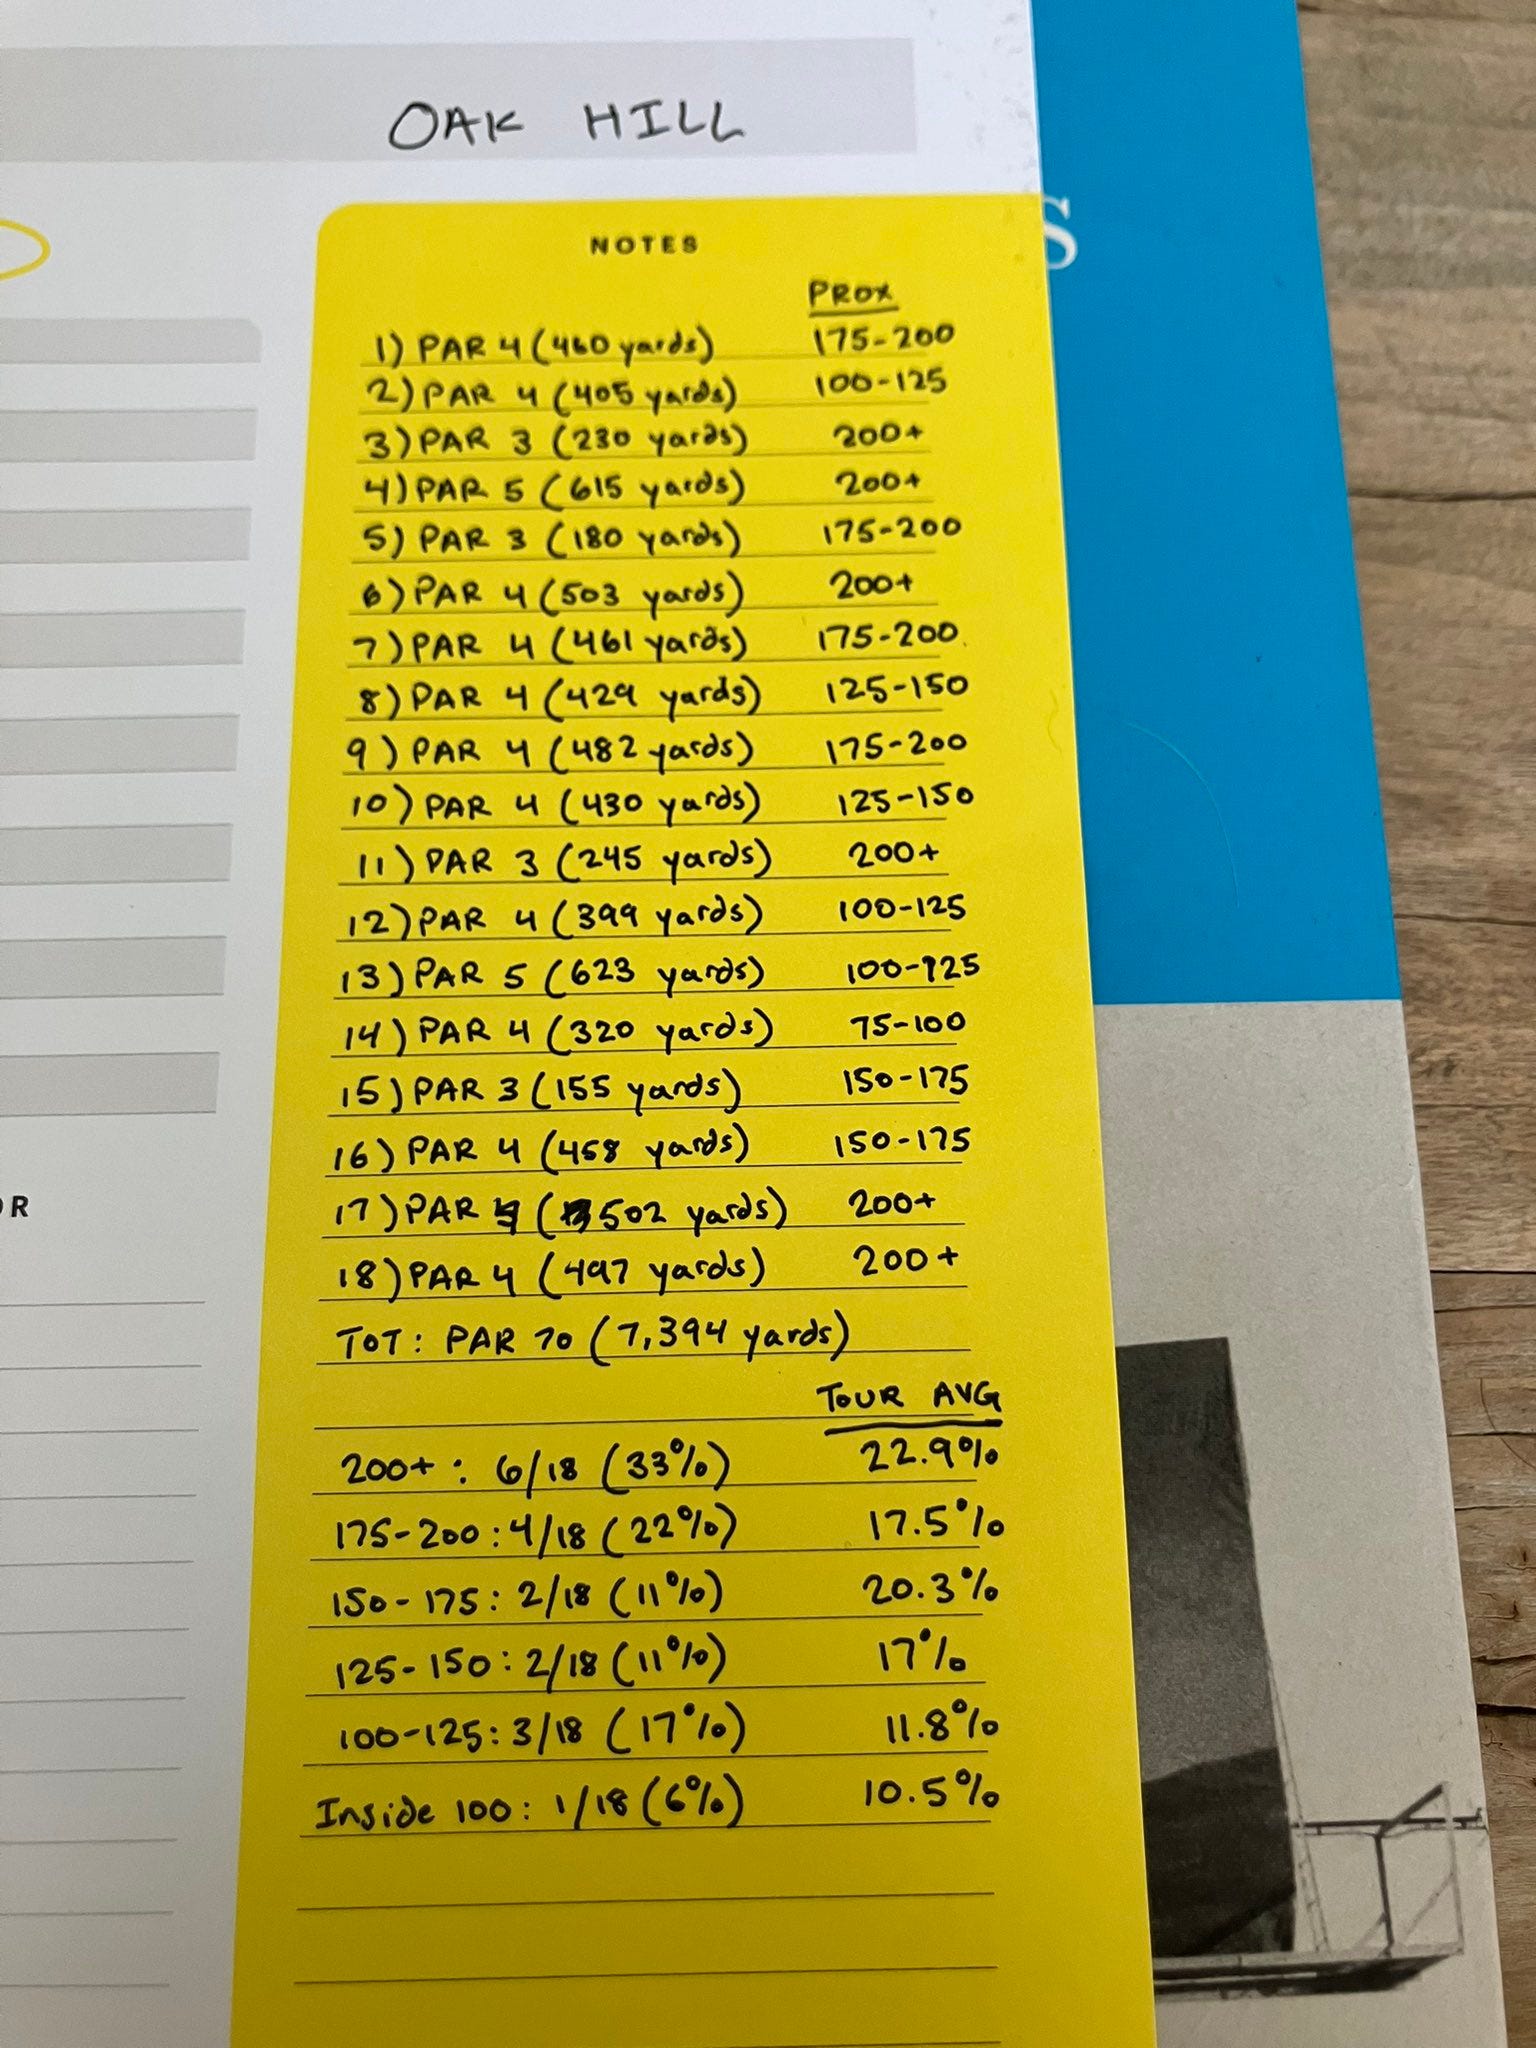 OAK HILL
S
NOTES
PROX
1) PAR 4 (460 yards) 175-200
2) PAR 4 (405 yards) 100-125
3) PAR 3 (230 yards) 200+
4) PAR 5 (615 yards) 200+
5) PAR 3 (180 yards) 175-200
6) PAR 4 (503 yards) 200+
7) PAR 4 (461 yards) 175-200
8) PAR 4 (429 yards) 125-150
9) PAR 4 (482 yards) 175-200
10) PAR 4 (430 yards) 125-150
11) PAR 3 (245 yards) 200+
12) PAR 4 (399 yards) 100-125
13) PAR 5 (623 yards) 100-125
14) PAR 4 (320 yards) 75-100
15) PAR 3 (155 yards) 150-175
16) PAR 4 (458 yards) 150-175
17) PAR 4 (502 yards) 200+
18) PAR 4 (497 yards) 200+
TOT: PAR 70 (7,394 yards)
TOUR AVG
200+ : 6/18 (33%) 22.9%
175-200: 4/18 (22%) 17.5%
150-175: 2/18 (11%) 20.3%
125-150: 2/18 (11%) 17%
100-125: 3/18 (17%) 11.8%
Inside 100: 1/18 (6%) 10.5%
OR